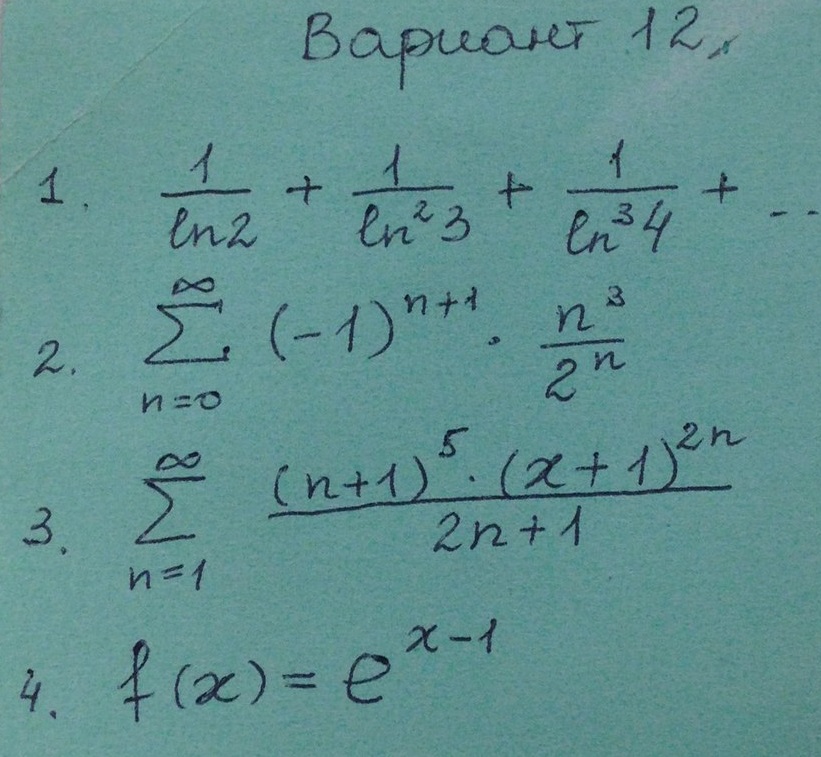 Вариант 12.
1. 1/ln2 + 1/ln²3 + 1/ln³4 + ...
2. ∑_{n=0}^{∞} (-1)^{n+1} · n³/2ⁿ
3. ∑_{n=1}^{∞} (n+1)⁵·(x+1)^{2n}/(2n+1)
4. f(x) = e^{x-1}